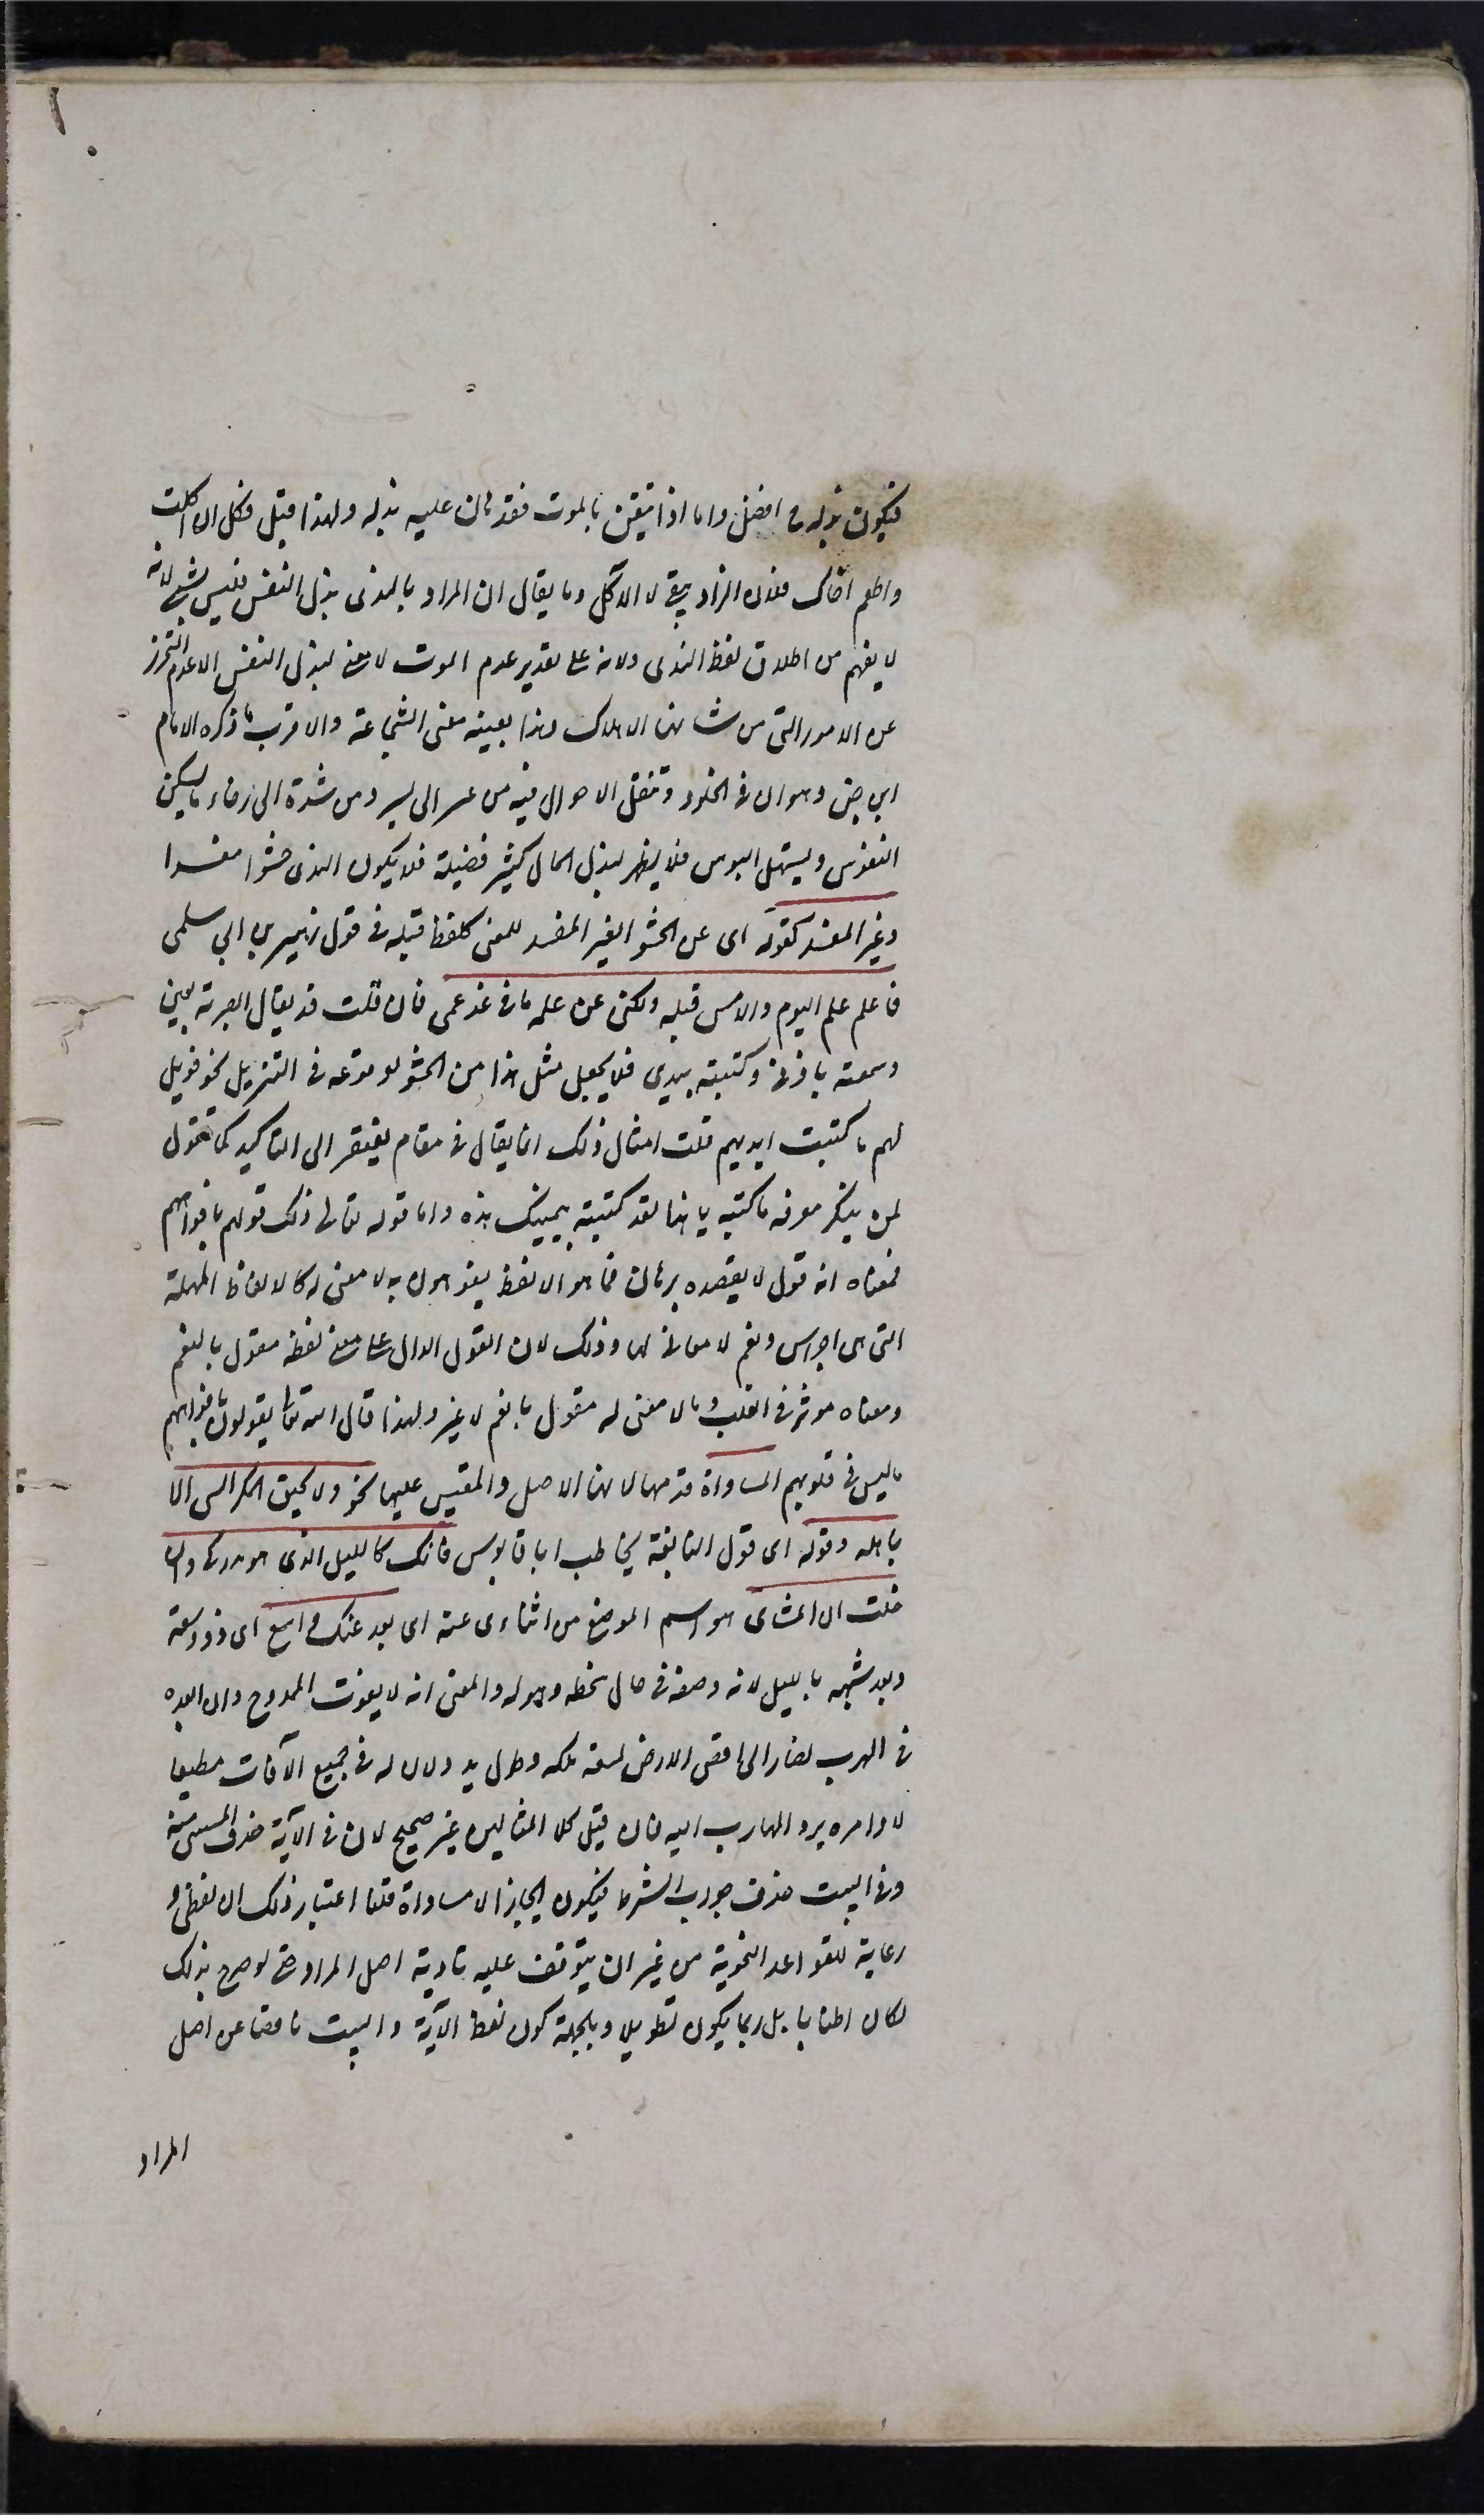 فيكون بذله ح افضل واما اذا تيقن بالموت فقد هان عليه بذله ولهذا قيل فكل ان اكلت
واطعم اخاك فلا الزاد يبقى ولا الآكل وما يقال ان المراد بالندى بذل النفس فليس بشئ لانه
لا يفهم من اطلاق لفظ الندى ولانه على تقدير عدم الموت لا معنى لبذل النفس الا عدم التحرز
عن الامور التى من شانها الاهلاك وهذا بعينه معنى الشجاعة والاقرب ما ذكره الامام
ابن جنى وهو ان فى الخلود وتنقل الاحوال فيه من عسر الى يسر ومن شدة الى رخاء ما يسكن
النفوس ويسهل البوس فلا يظهر لبذل المال كثير فضيلة فلا يكون الندى حشوا مفسدا
وغير المفسد كقوله اى عن الحشو الغير المفسد للمعنى كلفظ قبله فى قول زهير بن ابى سلمى
فاعلم علم اليوم والامس قبله ولكننى عن علم ما فى غد عمى فان قلت قد يقال ابصرته بعينى
وسمعته باذنى وكتبته بيدى فلا يجعل مثل هذا من الحشو لوقوعه فى التنزيل نحو فويل
لهم مما كتبت ايديهم قلت امثال ذلك انما يقال فى مقام يفتقر الى التاكيد كما تقول
لمن ينكر معرفة ما كتبه يا هذا لقد كتبته بيمينك هذه واما قوله تعالى ذلك قولهم بافواههم
فمعناه انه قول لا يعضده برهان فما هو الا لفظ يفوهون به لا معنى له كالالفاظ المهملة
التى هى اجراس ونغم لا معانى لها وذلك لان القول الدال على معنى لفظه مقول بالفم
ومعناه مؤثر فى القلب وما لا معنى له مقول بالفم لا غير ولهذا قال الله تعالى يقولون بافواههم
ما ليس فى قلوبهم المساواة قدمها لانها الاصل والمقيس عليها نحو ولا يحيق المكر السيئ الا
باهله وقوله اى قول النابغة يخاطب ابا قابوس فانك كالليل الذى هو مدركى وان
خلت ان المنتأى هو اسم الموضع من انتأى عنه اى بعد عنك واسع اى ذو سعة
وبعد شبهه بالليل لانه وصفه فى حال سخطه وهوله والمعنى انه لا يفوت الممدوح وان ابعد
فى الهرب لصار الى اقصى الارض لسعة ملكه وطول يده ولان له فى جميع الآفات مطيعا
لاوامره يرد الهارب اليه فان قيل كلا المثالين غير صحيح لان فى الآية حذف المستثنى منه
وفى البيت حذف جواب الشرط فيكون ايجازا لا مساواة قلنا اعتبار ذلك امر لفظى و
رعاية للقواعد النحوية من غير ان يتوقف عليه تادية اصل المراد حتى لو صرح بذلك
لكان اطنابا بل ربما يكون تطويلا وبالجملة كون لفظ الآية والبيت ناقصا عن اصل
المراد